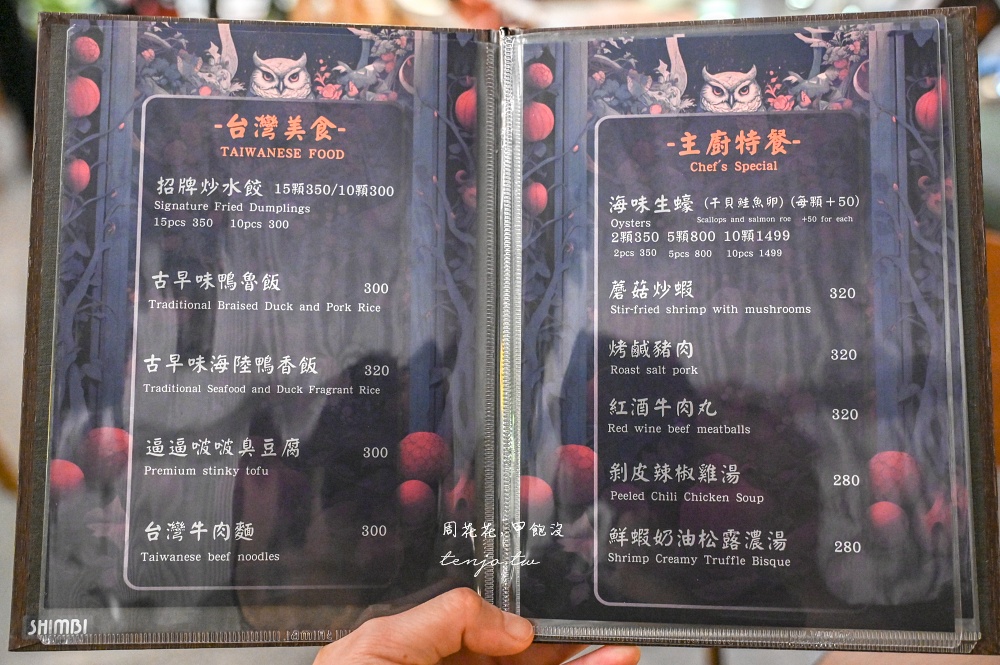 -台灣美食-
TAIWANESE FOOD
招牌炒水餃 15顆350/10顆300
Signature Fried Dumplings
15pcs 350 10pcs 300
古早味鴨魯飯 300
Traditional Braised Duck and Pork Rice
古早味海陸鴨香飯 320
Traditional Seafood and Duck Fragrant Rice
逼逼啵啵臭豆腐 300
Premium stinky tofu
台灣牛肉麵 300
Taiwanese beef noodles
-主廚特餐-
Chef's Special
海味生蠔 (干貝鮭魚卵) (每顆+50)
Oysters Scallops and salmon roe +50 for each
2顆350 5顆800 10顆1499
2pcs 350 5pcs 800 10pcs 1499
蘑菇炒蝦 320
Stir-fried shrimp with mushrooms
烤鹹豬肉 320
Roast salt pork
紅酒牛肉丸 320
Red wine beef meatballs
剝皮辣椒雞湯 280
Peeled Chili Chicken Soup
鮮蝦奶油松露濃湯 280
Shrimp Creamy Truffle Bisque
周花花,甲飽沒
tenjo.tw
SHIMBI